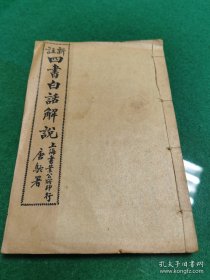 新註
四書白話解說
上海書業公所印行
唐駝署
孔夫子旧书网